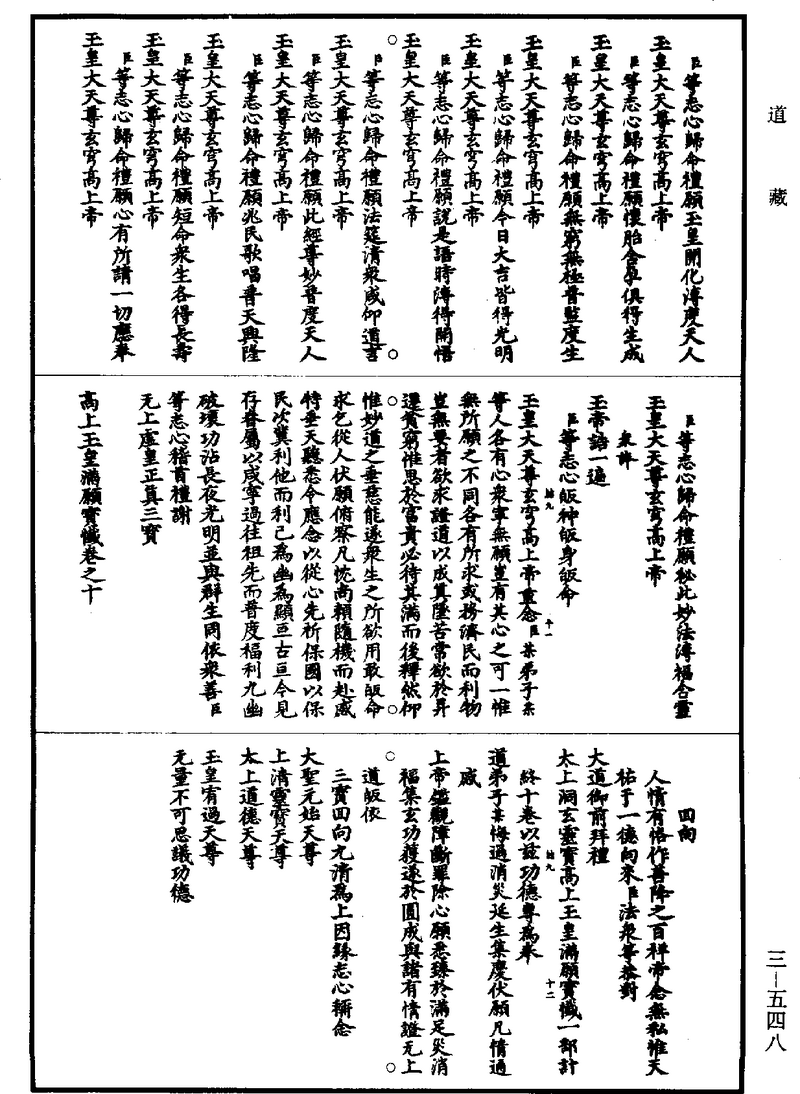 道藏
臣等志心歸命禮願玉皇開化溥度天人
玉皇大天尊玄穹高上帝
臣等志心歸命禮願懷胎含孕俱得生成
玉皇大天尊玄穹高上帝
臣等志心歸命禮願無窮無極普監度生
玉皇大天尊玄穹高上帝
臣等志心歸命禮願今日大吉皆得光明
玉皇大天尊玄穹高上帝
臣等志心歸命禮願說是語時溥得開悟
玉皇大天尊玄穹高上帝
臣等志心歸命禮願法筵清衆咸仰道言
玉皇大天尊玄穹高上帝
臣等志心歸命禮願此經尊妙普度天人
玉皇大天尊玄穹高上帝
臣等志心歸命禮願兆民歌唱普天興隆
玉皇大天尊玄穹高上帝
臣等志心歸命禮願短命衆生各得長壽
玉皇大天尊玄穹高上帝
臣等志心歸命禮願心有所請一切應奉
玉皇大天尊玄穹高上帝
臣等志心歸命禮願秘此妙法溥福含靈
玉皇大天尊玄穹高上帝
衆誦
玉帝誥一遍
臣等志心皈神皈身皈命
玉皇大天尊玄穹高上帝重念臣某弟子某
等人各有心衆寧無願豈有其心之可一惟
無所願之不同各有所求或務濟民而利物
豈無要者欲求證道以成真墜苦常欲於昇
遷貧窮惟思於富貴必待其滿而後釋然仰
惟妙道之垂慈能遂衆生之所欲用敢皈命
求乞從人伏願俯察凡忱高頼隨機而赴感
特垂天聽悉令應念以從心先祈保國以保
民次冀利他而利己為幽為顯亘古亘今見
存眷屬以咸寧過往祖先而普度福利九幽
破壞功沾長夜光明並與群生同依衆善臣
等志心稽首禮謝
无上虛皇正真三寶
高上玉皇滿願寶懺卷之十
回向
人情有恪作善降之百祥帝念無私惟天
祐于一德向來臣法衆等恭對
大道御前拜禮
太上洞玄靈寶高上玉皇滿願寶懺一部計
終十卷以玆功德專為奉
道弟子某悔過消災延生集慶伏願凡情通
感
上帝鑑觀障斷罪除心願悉臻於滿足災消
福集玄功獲遂於圓成與諸有情證无上
道皈依
三寶回向尢清為上因緣志心稱念
大聖元始天尊
上清靈寶天尊
太上道德天尊
玉皇宥過天尊
无量不可思議功德
三—五四八